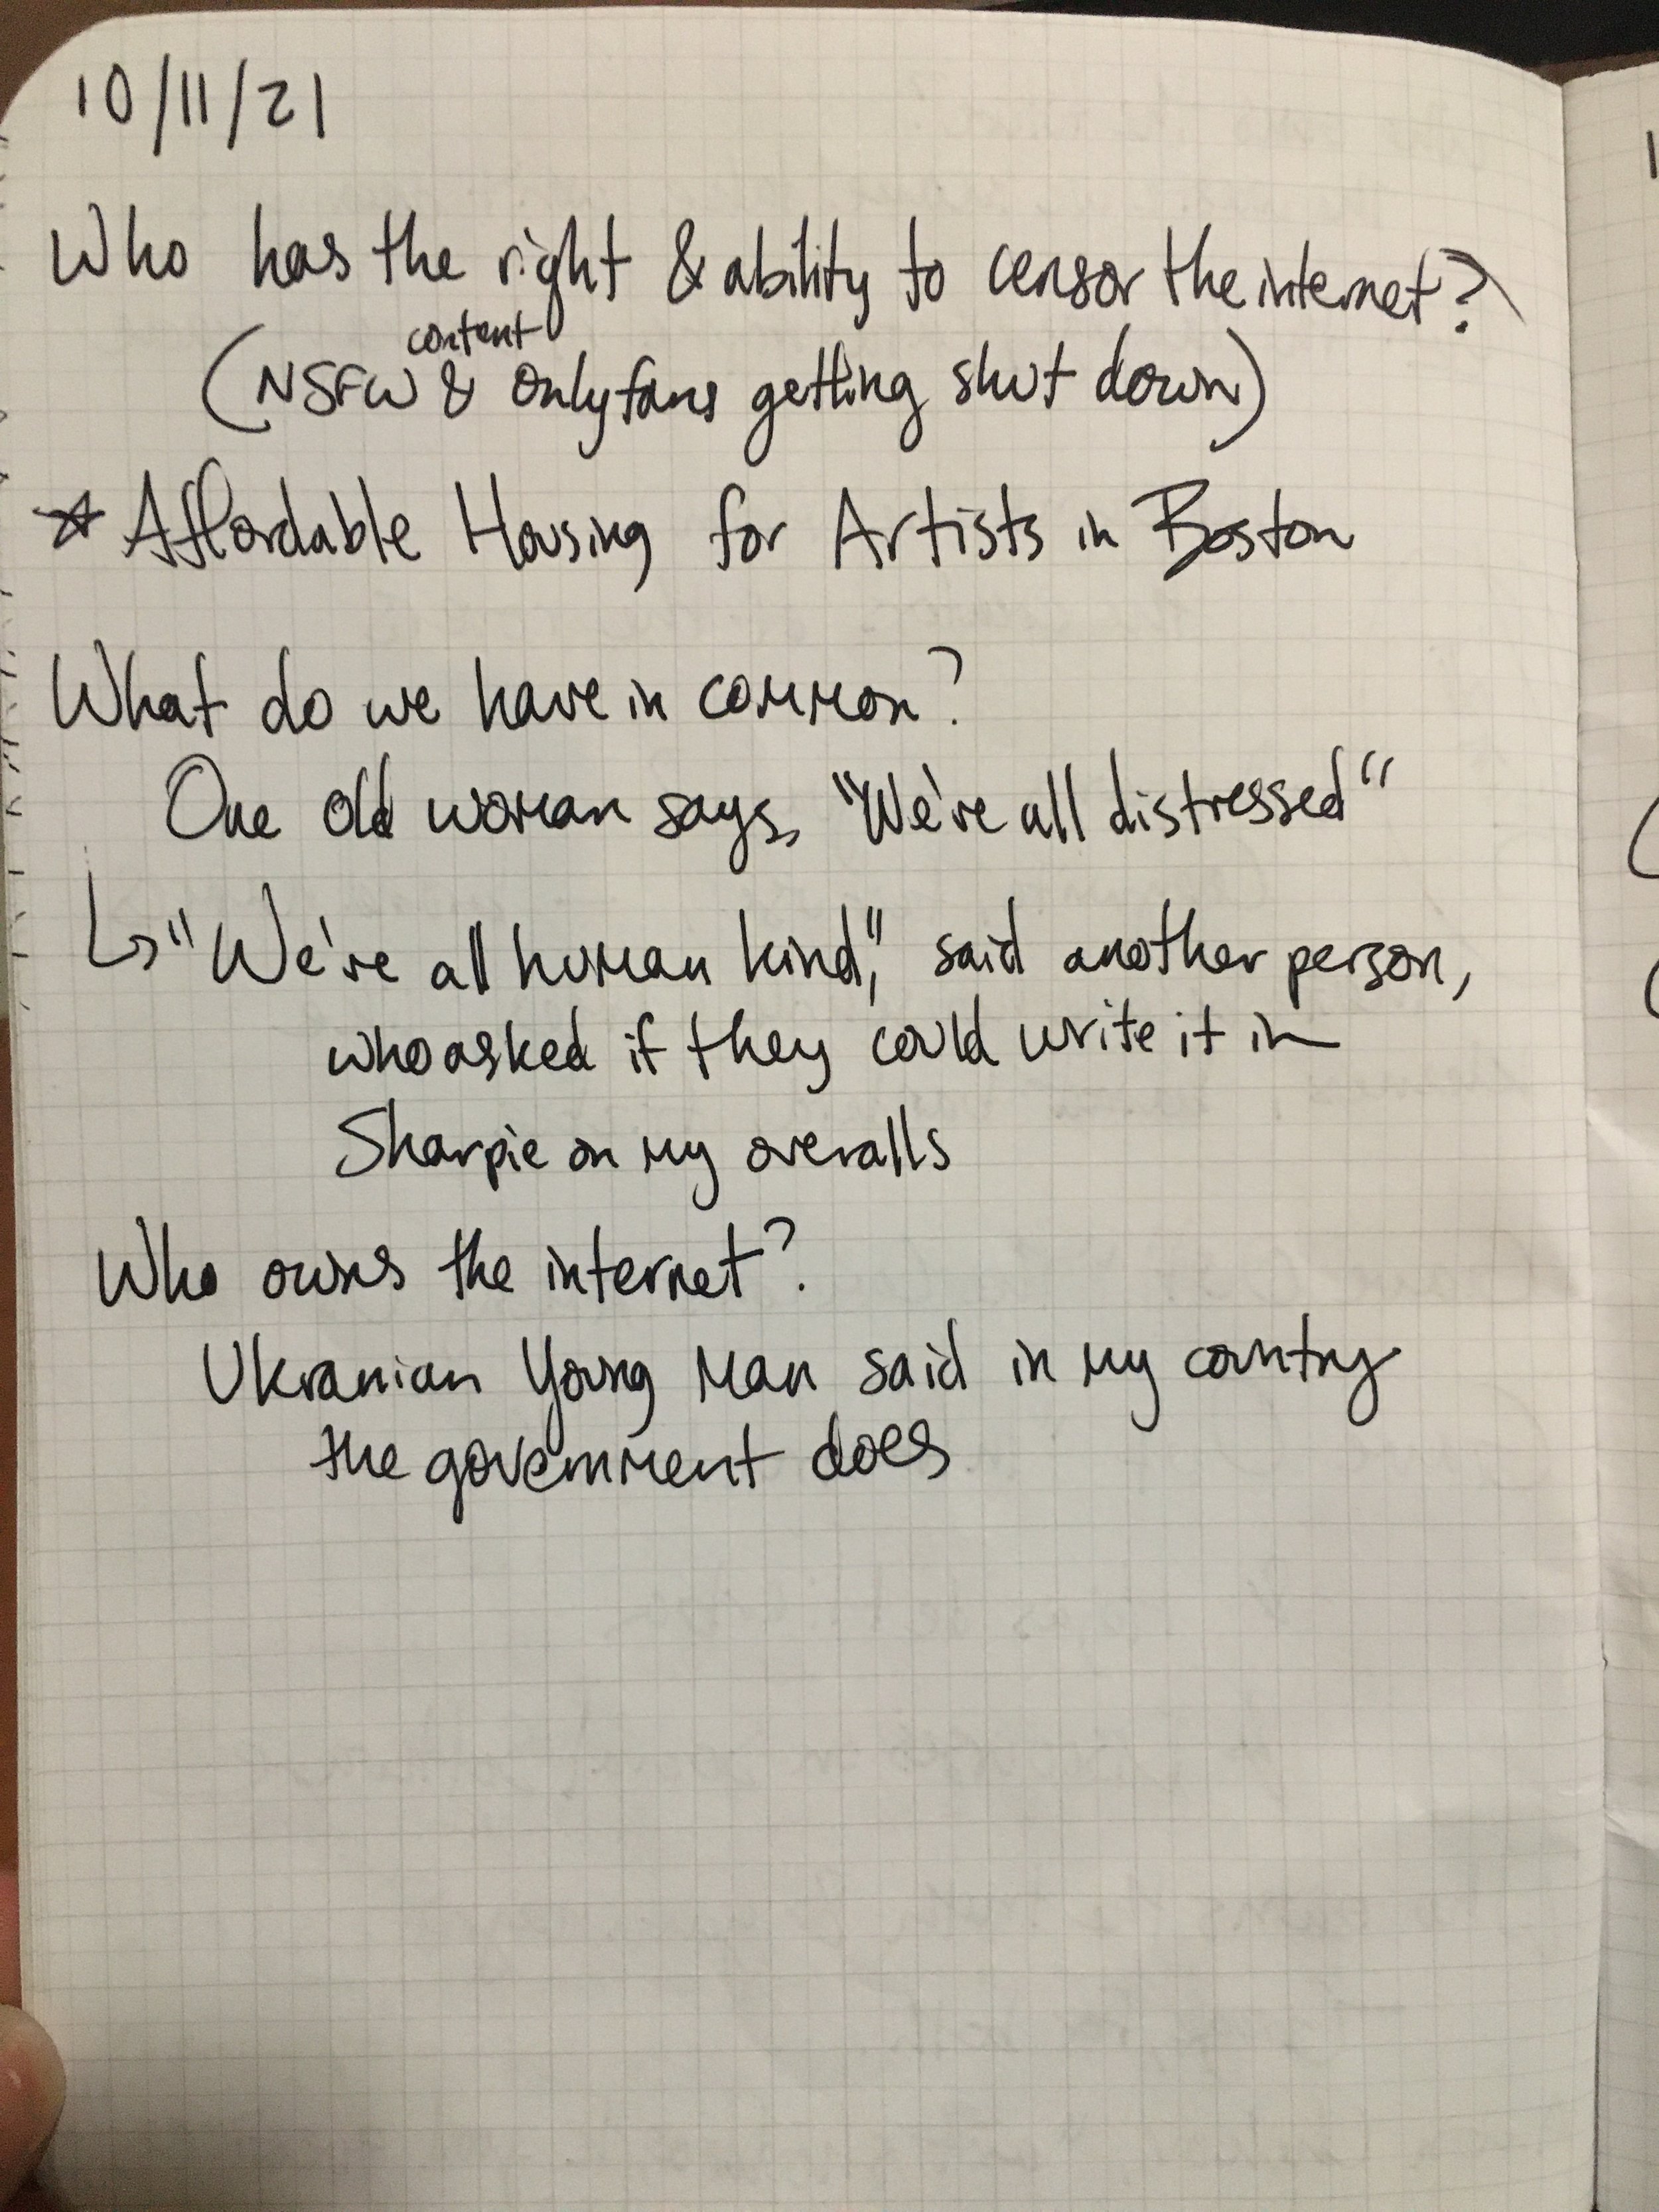 10/11/21
Who has the right & ability to censor the internet?
content
(NSFW & Onlyfans getting shut down)
☆ Affordable Housing for Artists in Boston
What do we have in common?
One old woman says, "We're all distressed"
↳ "We're all human kind," said another person,
who asked if they could write it in
Sharpie on my overalls
Who owns the internet?
Ukranian Young Man said in my country
the government does